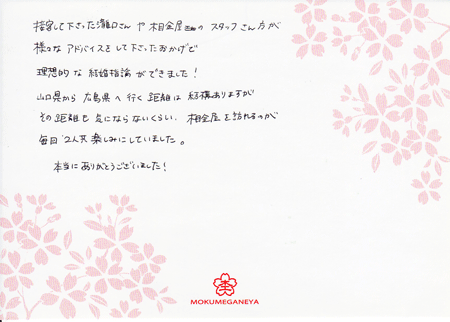 接客して下さった瀧口さん や 杢目金屋さんの スタッフさん方が
様々な アドバイスをして下さったおかげで
理想的な 結婚指輪ができました！
山口県から 広島県へ 行く 距離は 結構ありますが
その距離も 気にならないくらい、杢目金屋を訪れるのが
毎回 2人共 楽しみにしていました。
本当にありがとうございました！
MOKUMEGANEYA